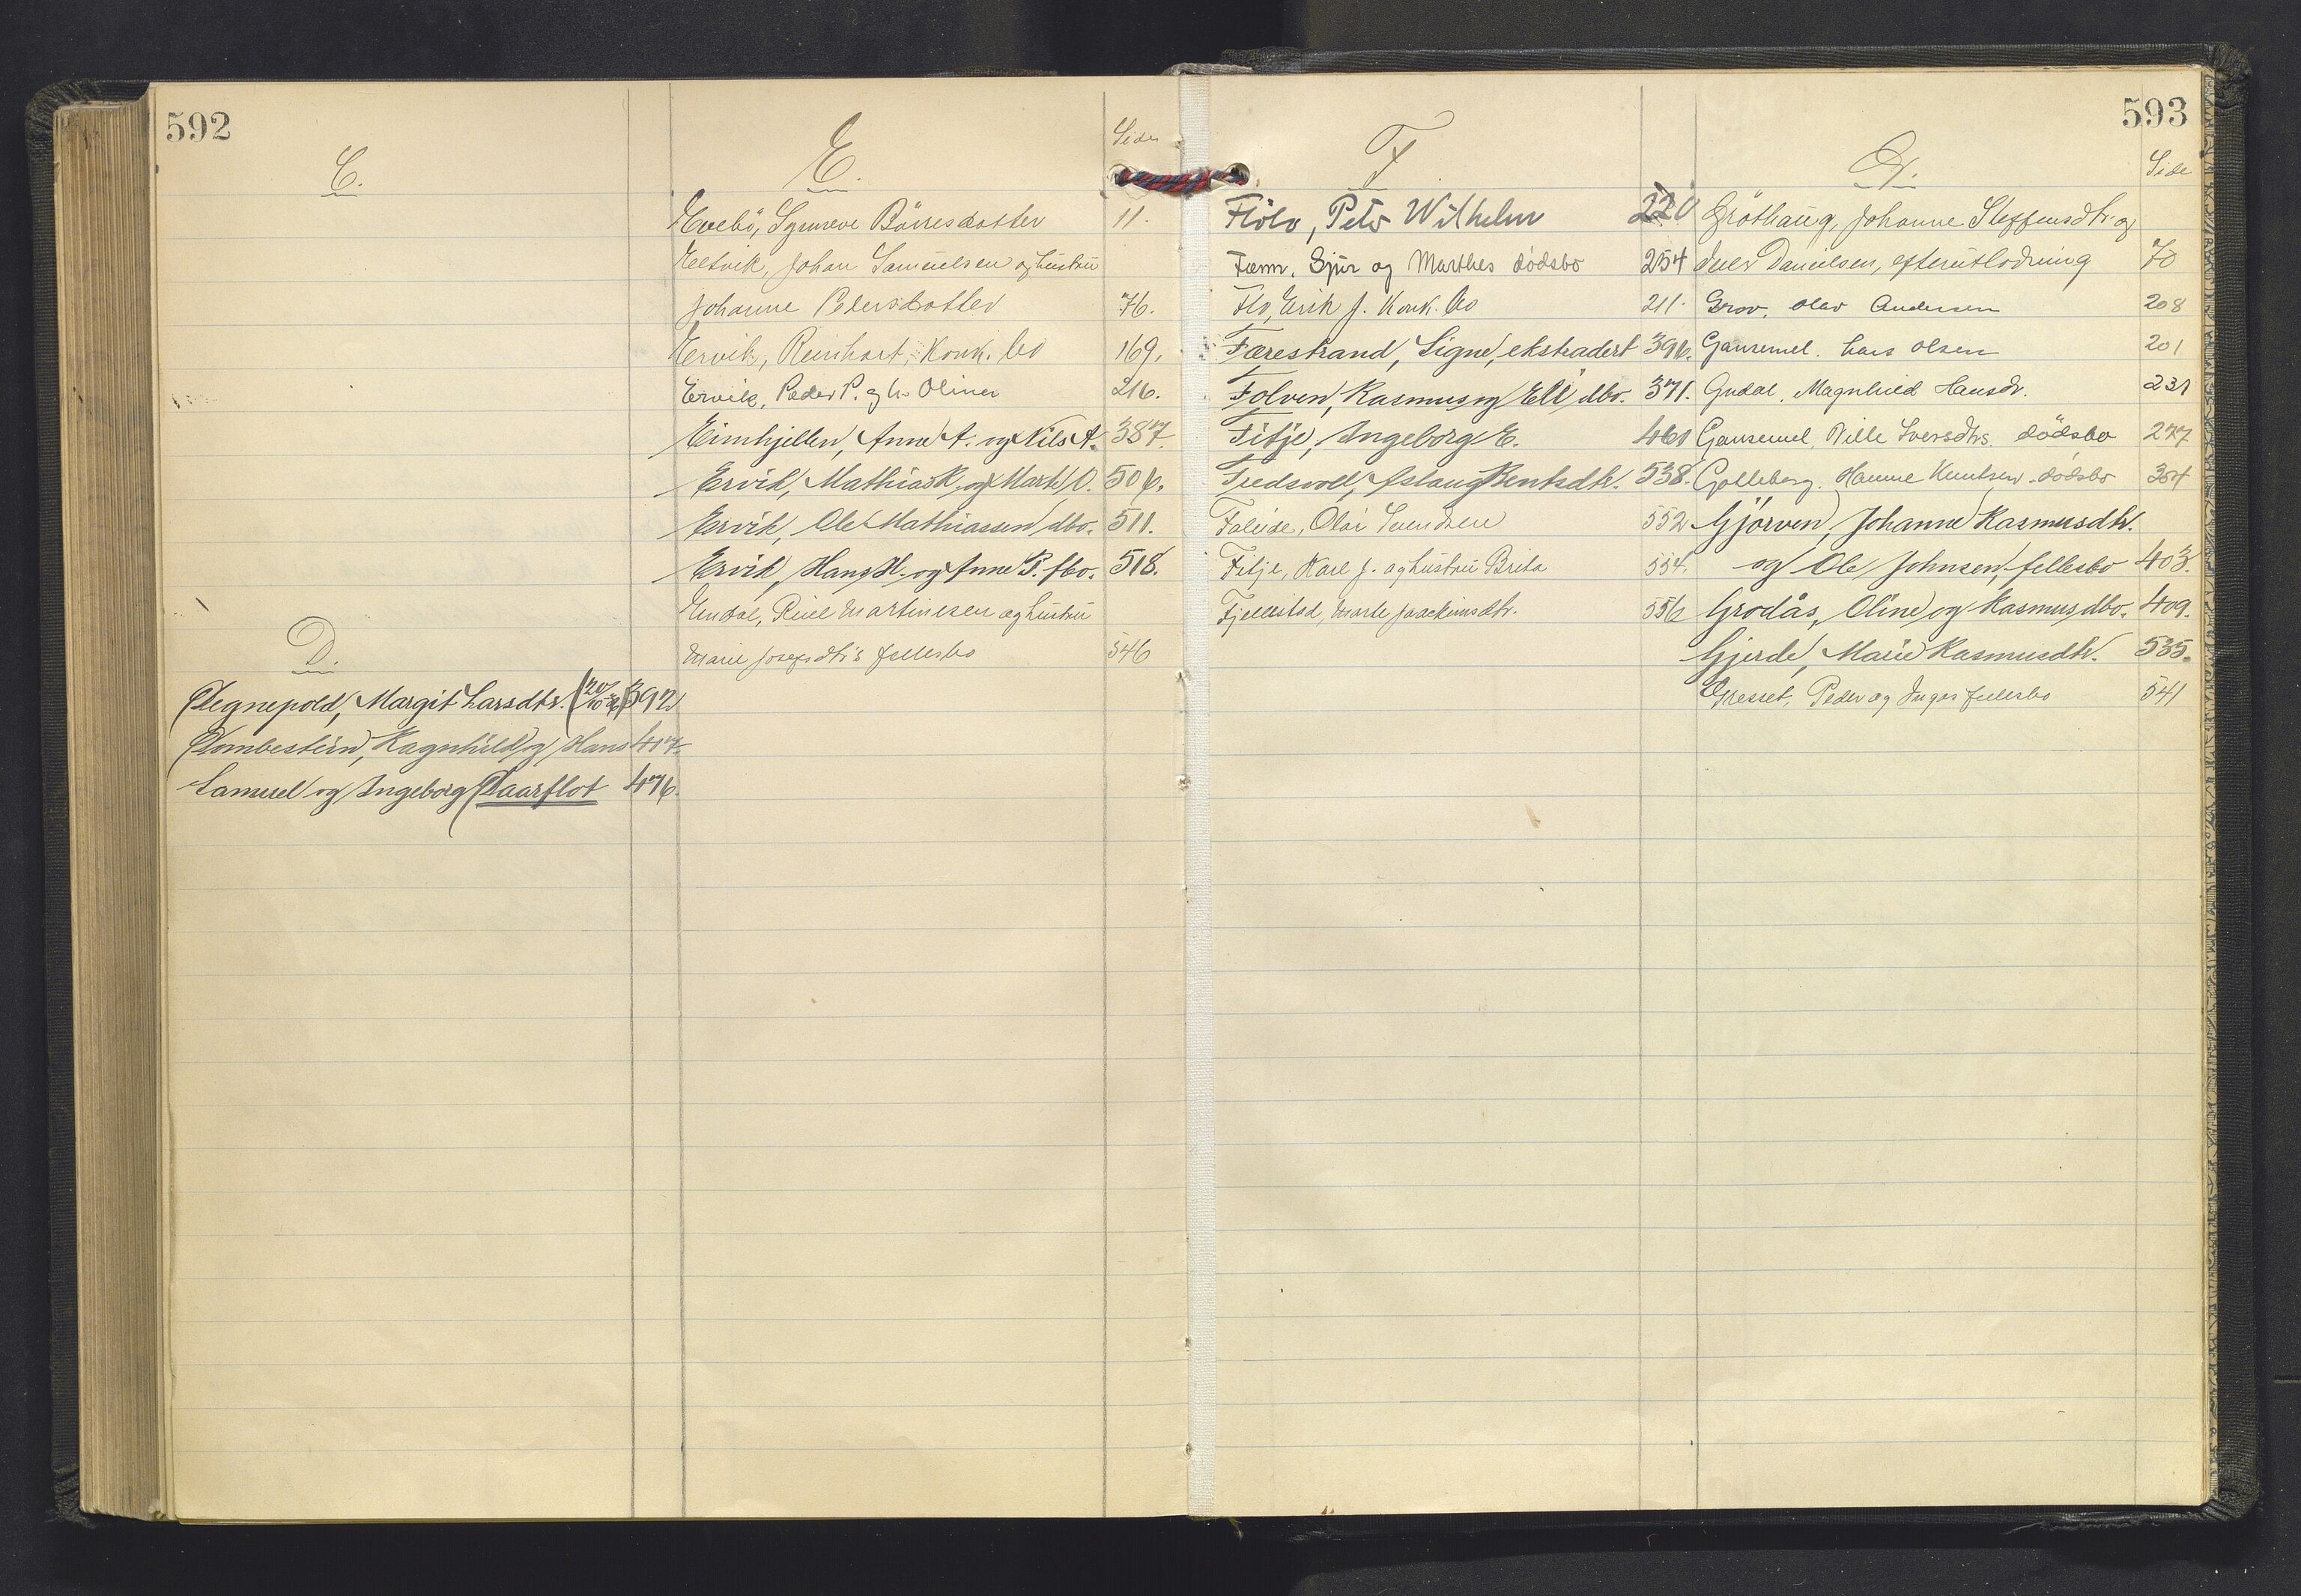 592
C.
D.
Degnepold, Margit Larsdtr. 392
Dombestein, Ragnhild og Hans 417
Samuel og Ingeborg Daarflot 476.
E.
Side
Evebö, Synneve Börresdotter 11.
Eltvik, Johan Samuelsen og hustru
Johanne Pedersdotter 76.
Ervik, Reinhart, Konk. bo 169.
Ervik, Peder P. og h. Oline 216.
Eimhjellen, Anne A. og Nils A. 387.
Ervik, Mathias R. og Marte O. 506.
Ervik, Ole Mathiassen dbo. 511.
Ervik, Hans H. og Anne P. fbo. 518.
Endal, Martinesen og hustru
Marie Josefsdtr's fellesbo 546
F.
Flölo, Peter Wilhelm 220
Fænn, Sjur og Marthes dödsbo 254
Flo, Erik J. Konk. bo 211.
Færestrand, Signe, ekstradert 396.
Folven, Rasmus og Eli dbo. 371.
Fitje, Ingeborg E. 460
Fredsvoll, Aslaug Bentsdtr. 538.
Faleide, Olai Svendsen 552
Fitje, Karl J. og hustru Brita 554.
Fjellestad, Marte Joackimsdtr. 556
593
G.
Side
Gröthaug, Johanne Steffensdtr. og
Iver Danielsen, efterutlodning 70
Grov, Olav Andersen 208
Gausemel, Lars Olsen 201
Gudal, Magnhild Hansdr. 231
Gausemel, Pille Iversdtrs. dödsbo 277
Golleberg, Hanne Knutsen dödsbo 304
Gjörven, Johanne Rasmusdtr.
og Ole Johnsen, fellesbo 403.
Grodås, Oline og Rasmus, dbo. 409.
Gjerde, Marie Rasmusdtr. 535.
Gresset, Peder og Ingas fellesbo 541